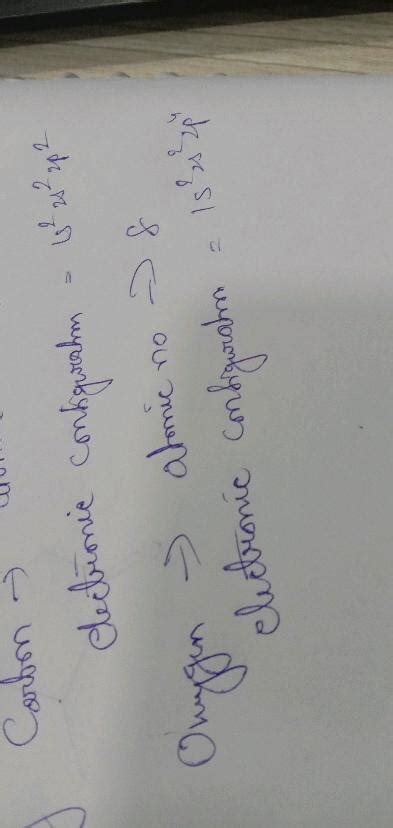 Carbon →
electronic configuration = 1s² 2s² 2p²
Oxygen → atomic no → 8
electronic configuration = 1s² 2s² 2p⁴